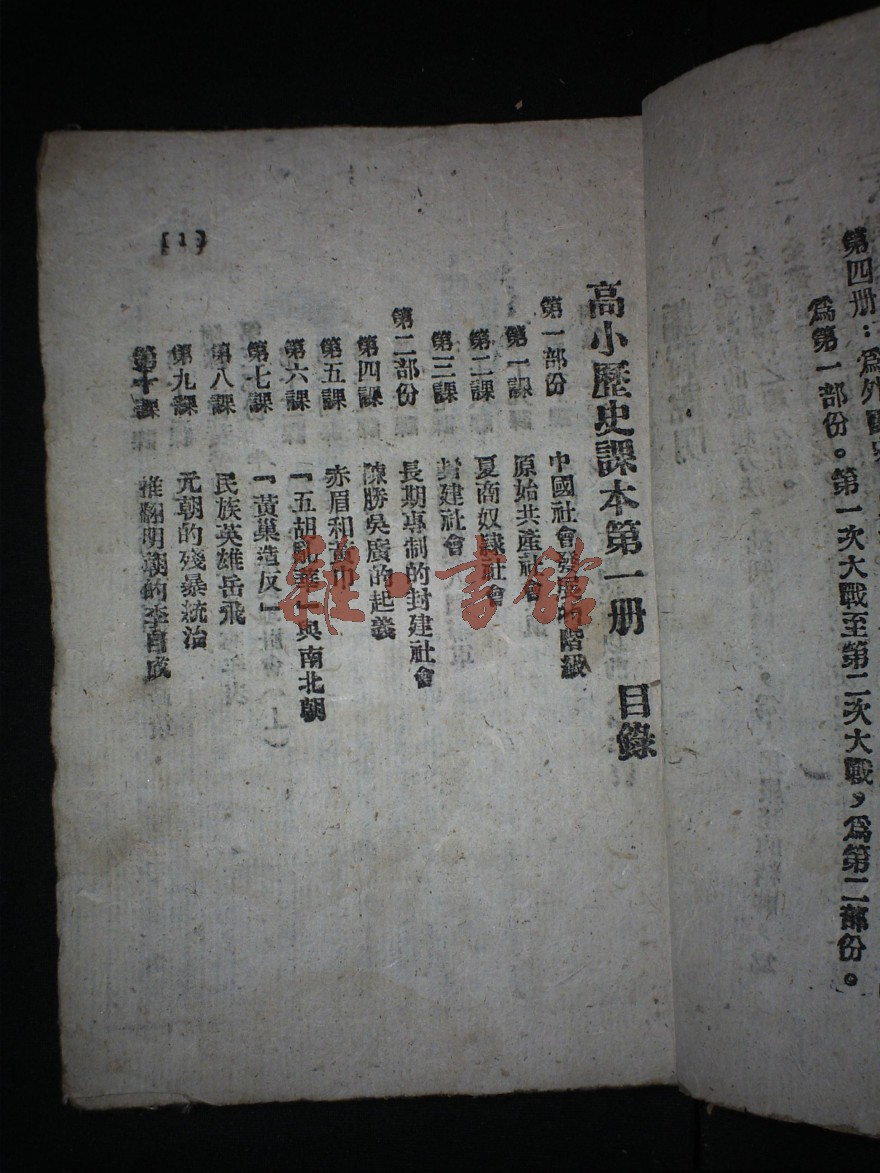 第四册：為外國史
為第一部份。第一次大戰至第二次大戰，為第二部份。
高小歷史課本第一册　目錄
第一部份　中國社會發展的階級
第一課　原始共產社會
第二課　夏商奴隸社會
第三課　封建社會
第二部份　長期專制的封建社會
第四課　陳勝吳廣的起義
第五課　赤眉和黃巾
第六課　「五胡亂華」與南北朝
第七課　「黃巢造反」
第八課　民族英雄岳飛
第九課　元朝的殘暴統治
第十課　推翻明朝的李自成
【1】
雜·書館